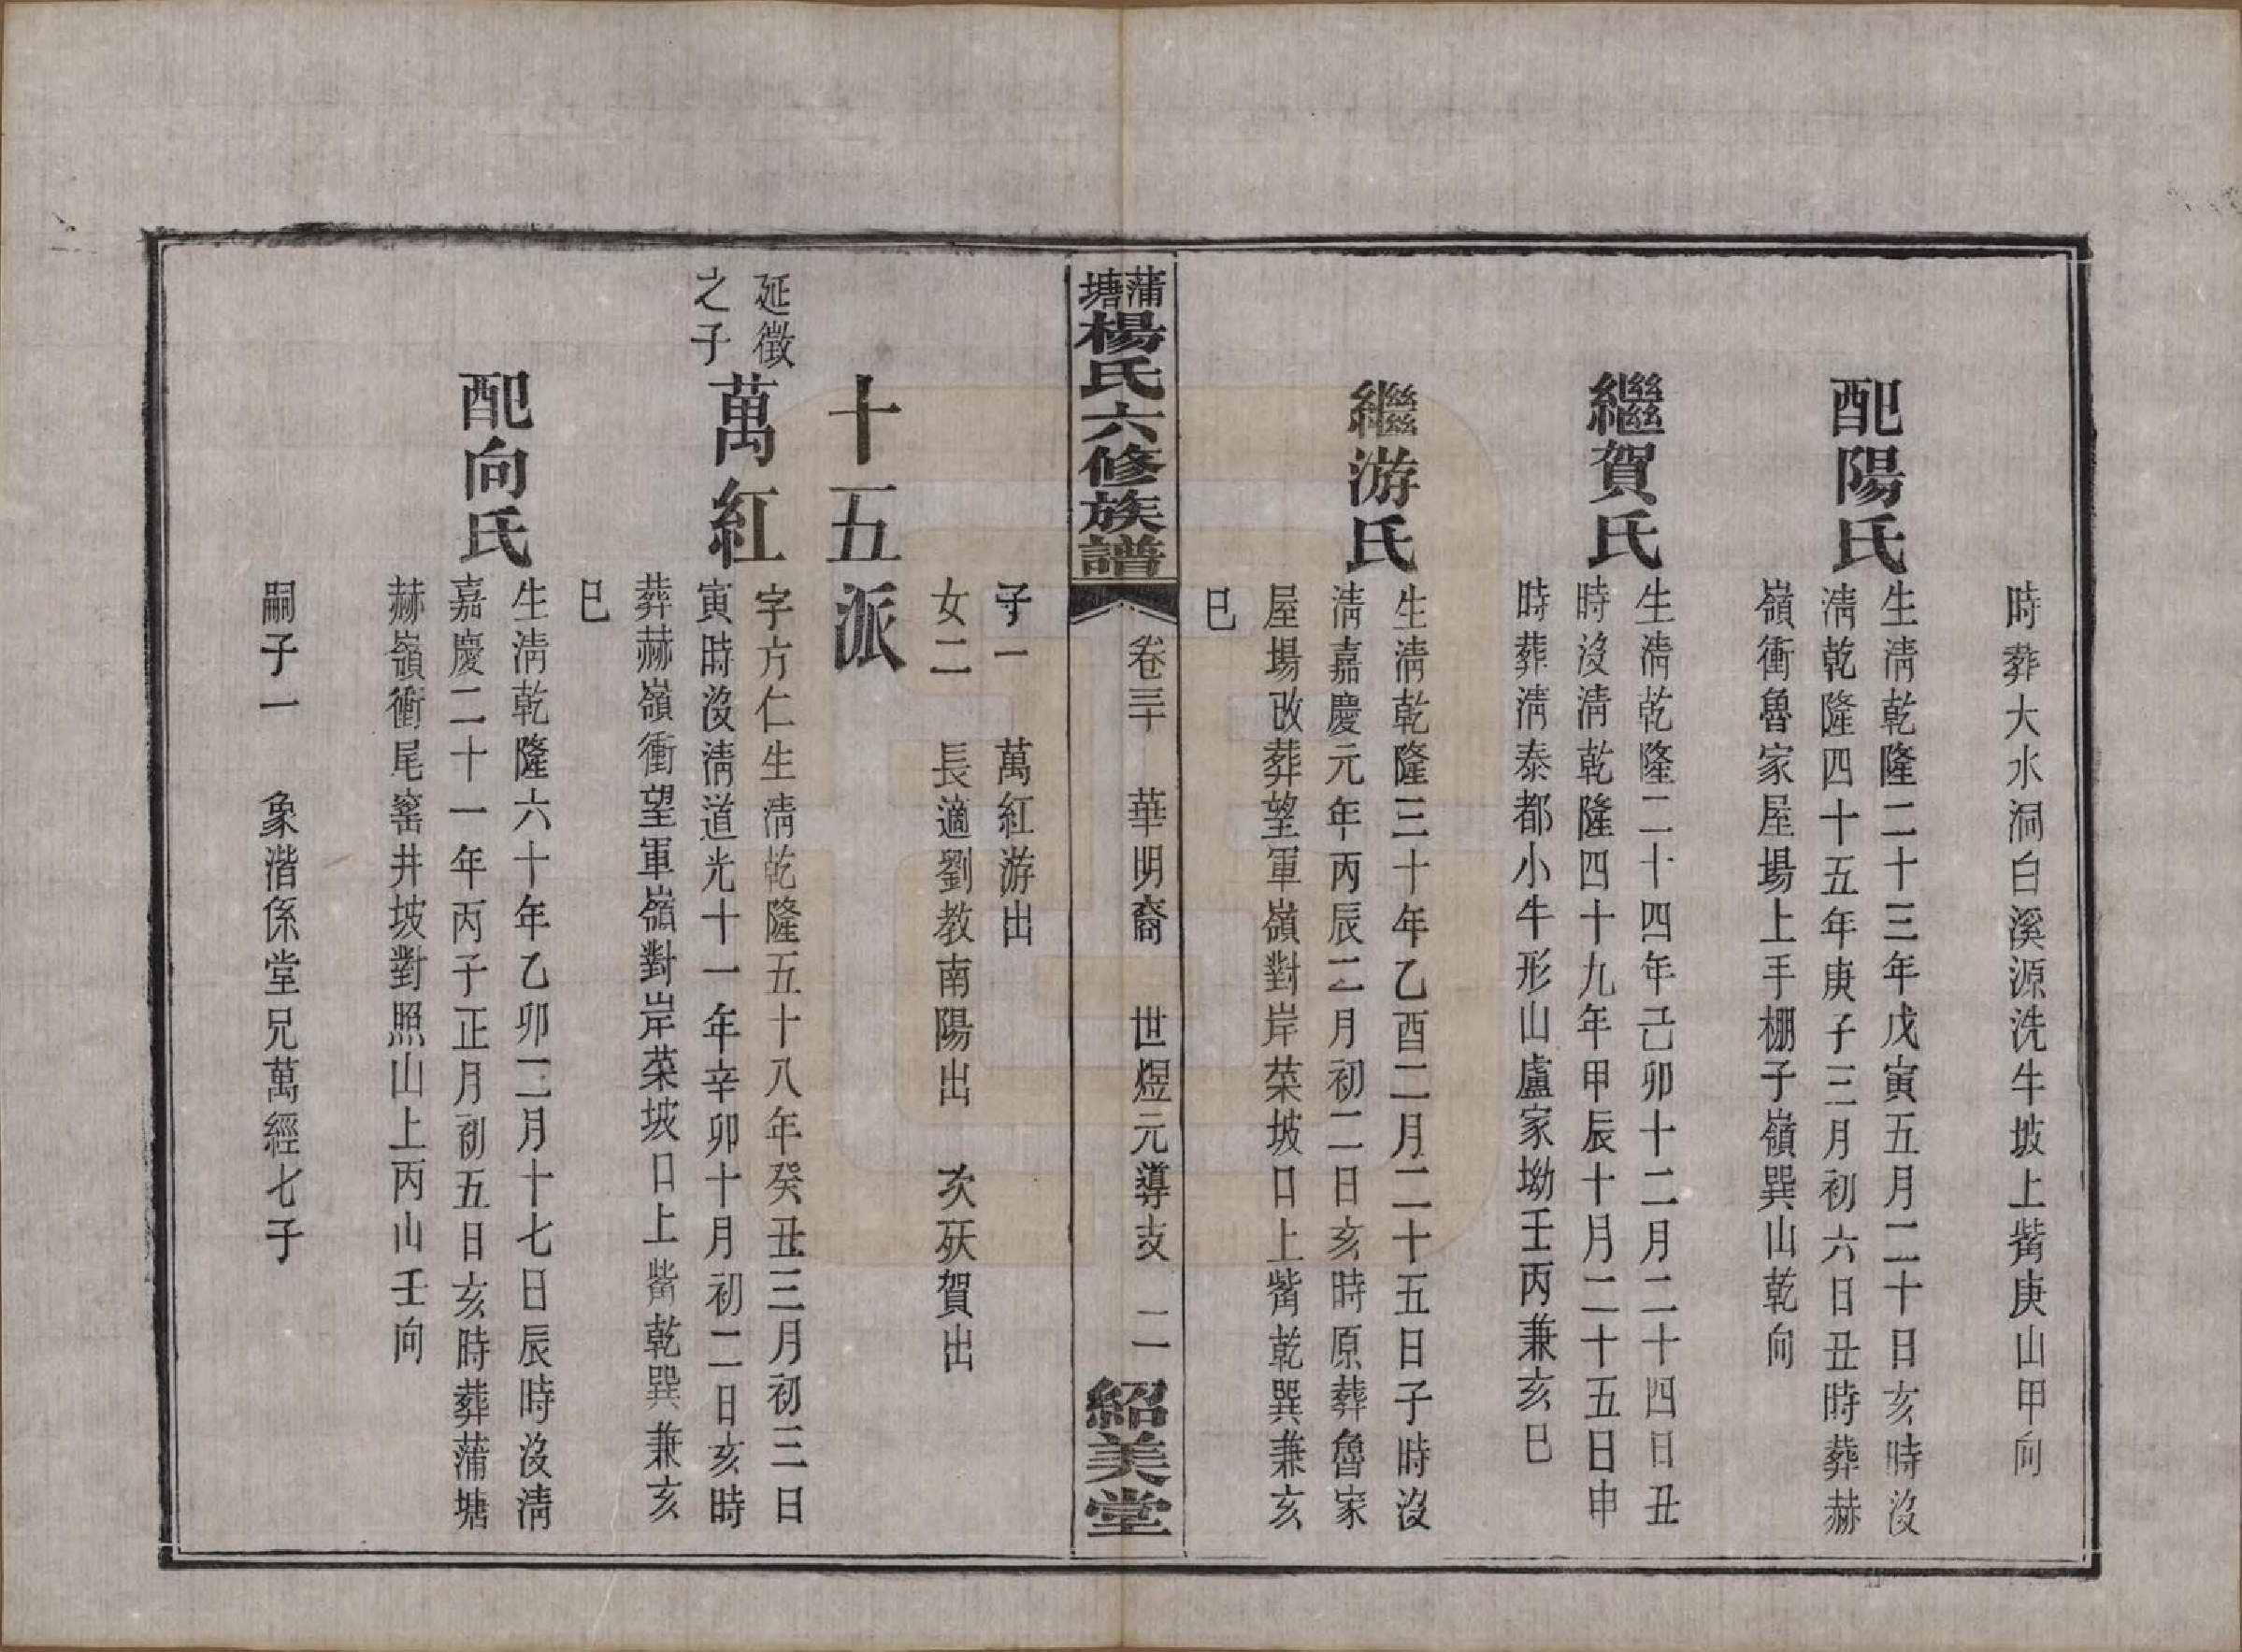 時葬大水洞白溪源洗牛坡上觜庚山甲向
配陽氏
生淸乾隆二十三年戊寅五月二十日亥時沒
淸乾隆四十五年庚子三月初六日丑時葬赫
嶺衝魯家屋場上手棚子嶺巽山乾向
繼賀氏
生淸乾隆二十四年己卯十二月二十四日丑
時沒淸乾隆四十九年甲辰十月二十五日申
時葬淸泰都小牛形山盧家坳壬丙兼亥巳
繼游氏
生淸乾隆三十年乙酉二月二十五日子時沒
淸嘉慶元年丙辰二月初二日亥時原葬魯家
屋場改葬望軍嶺對岸菜坡口上觜乾巽兼亥
巳
蒲塘楊氏六修族譜 卷三十 華明裔 世煜元導支 二 紹美堂
子一 萬紅游出
女二 長適劉教南陽出 次殀賀出
十五派
延徵
之子
萬紅
字方仁生淸乾隆五十八年癸丑三月初三日
寅時沒淸道光十一年辛卯十月初二日亥時
葬赫嶺衝望軍嶺對岸菜坡口上觜乾巽兼亥
巳
配向氏
生淸乾隆六十年乙卯二月十七日辰時沒淸
嘉慶二十一年丙子正月初五日亥時葬蒲塘
赫嶺衝尾窰井坡對照山上丙山壬向
嗣子一 象濳係堂兄萬經七子